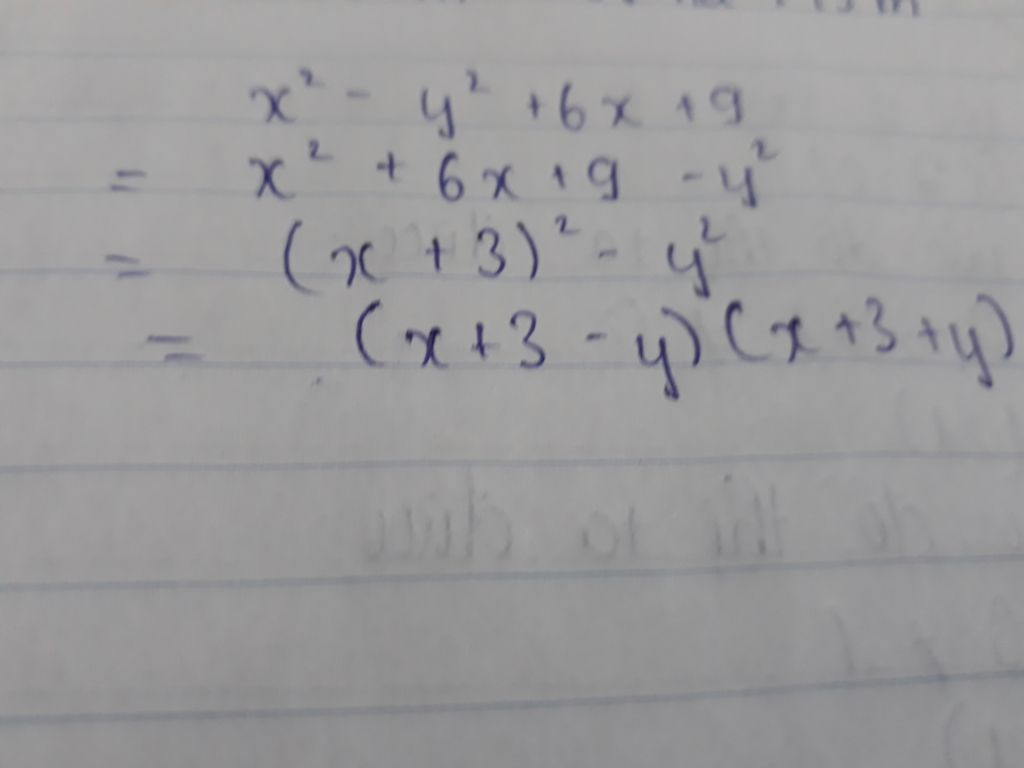 x² - y² + 6x + 9
= x² + 6x + 9 - y²
= (x + 3)² - y²
= (x + 3 - y)(x + 3 + y)